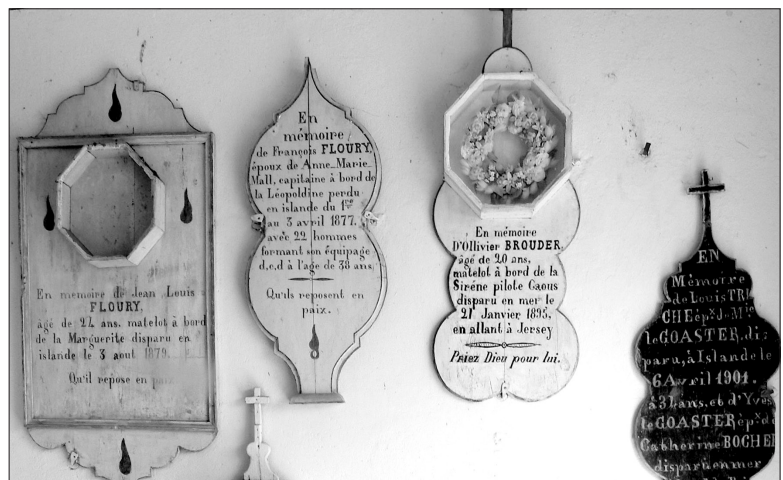 En mémoire de Jean Louis
FLOURY,
âgé de 24 ans. matelot à bord
de la Marguerite disparu en
islande le 3 aout 1879.
Qu'il repose en paix
En
mémoire
de François FLOURY,
époux de Anne-Marie
Mall, capitaine à bord de
la Léopoldine perdu
en islande du 1er
au 3 avril 1877.
avec 22 hommes
formant son équipage
d.c.d à l'age de 38 ans,
Qu'ils reposent en
paix.
En mémoire
D'Ollivier BROUDER,
âgé de 20 ans,
matelot à bord de la
Sirène pilote Gaous
disparu en mer le
21 Janvier 1895,
en allant à Jersey
Priez Dieu pour lui.
EN
Mémoire
de Louis TRI
CHE épx J. Mie
le GOASTER, dis
paru, à Islande le
6 Avril 1901.
à 31 ans. et d'Yves
le GOASTER épx de
Catherine BOCHER
disparu en mer